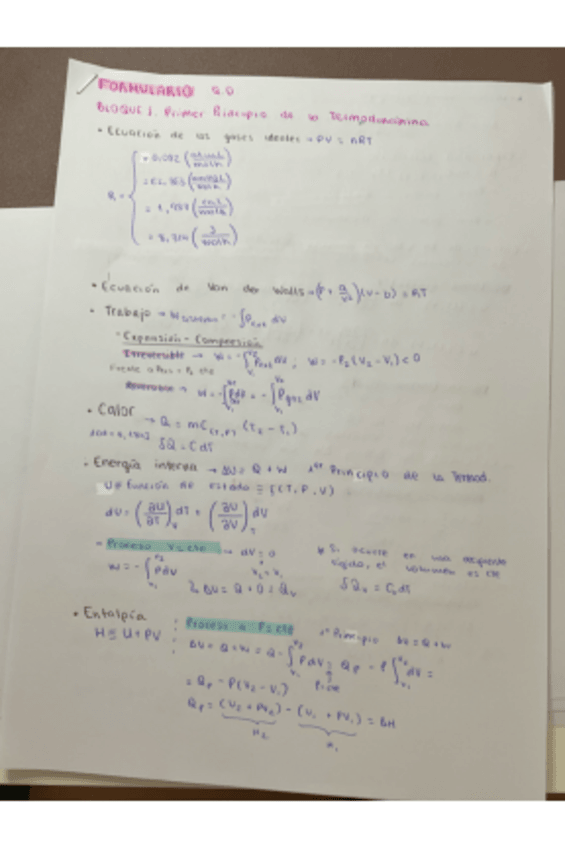 FORMULARIO Q.O
BLOQUE 1. Primer Principio de la Termodinámina
• Ecuación de los gases ideales → PV = nRT
R = { = 0,082 (atm·L / mol·K)
= 62,363 (mmHg·L / mol·K)
= 1,987 (cal / mol·K)
= 8,314 (J / mol·K)
• Ecuación de Van der Walls → (P + a/V²)(V - b) = RT
• Trabajo → W = -∫Pext dV
- Expansión - Compresión
Irreversible → W = -∫Pext dV ; W = -P₂(V₂ - V₁) < 0
Reversible → W = -∫PdV = -∫Pgas dV
• Calor → Q = mC (T₂ - T₁)
δQ = CdT
• Energía interna → ΔU = Q + W 1er Principio de la Termod.
U ≡ Función de estado ≡ f(T, P, V)
dU = (∂U/∂T)ᵥ dT + (∂U/∂V)ₜ dV
- Proceso V=cte → dV = 0
* Si ocurre en un recipiente rígido, el volumen es cte
W = -∫PdV V₂ = V₁ δQᵥ = CᵥdT
ΔU = Q + 0 = Qᵥ
• Entalpía : Proceso a P=cte 1er Principio ΔU = Q + W
H ≡ U + PV ΔU = Q + W = Q - ∫PdV = Qp - P∫dV =
= Qp - P(V₂ - V₁) P=cte
Qp = (U₂ + PV₂) - (U₁ + PV₁) = ΔH
H₂ H₁